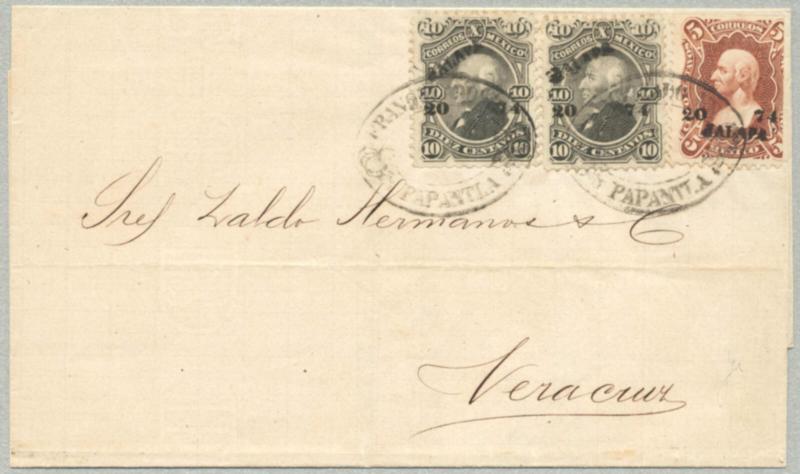 10 X 10
CORREOS MEXICO
JALAPA
10 10
20 74
DIEZ CENTAVOS
10 10
10 X 10
CORREOS MEXICO
JALAPA
10 10
20 74
DIEZ CENTAVOS
10 10
5 CORREOS 5
20 74
JALAPA
MEXICO
FRANCO
PAPANTLA
PAPANTLA
Sres Zaldo Hermanos & C
Veracruz